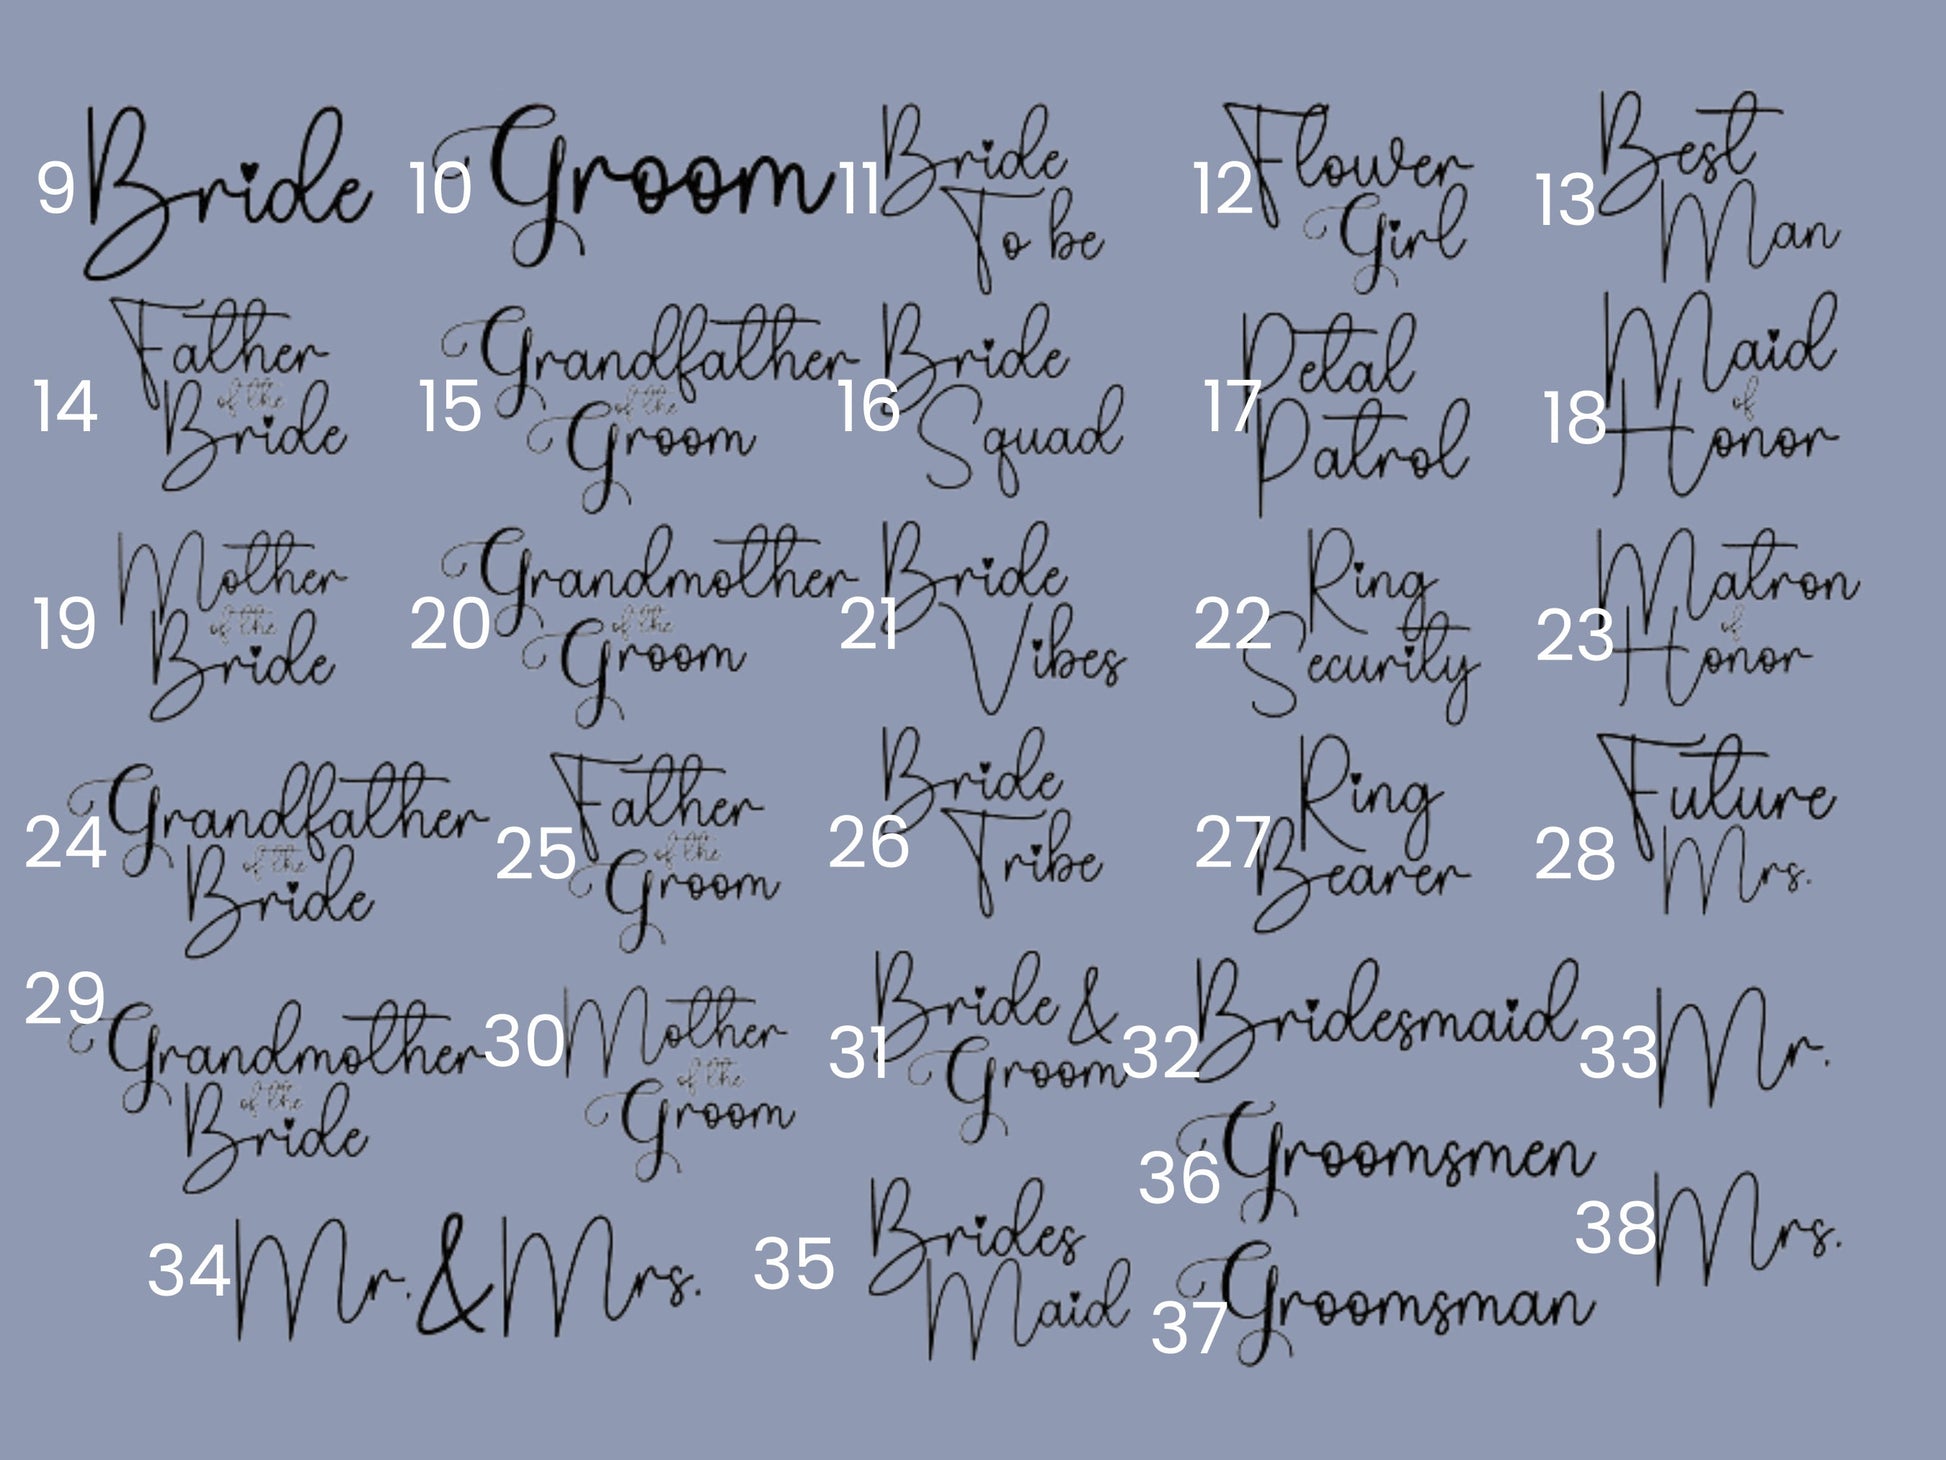 9 Bride
10 Groom
11 Bride
To be
12 Flower
Girl
13 Best
Man
14 Father
of the
Bride
15 Grandfather
of the
Groom
16 Bride
Squad
17 Petal
Patrol
18 Maid
of
Honor
19 Mother
of the
Bride
20 Grandmother
of the
Groom
21 Bride
Vibes
22 Ring
Security
23 Matron
of
Honor
24 Grandfather
of the
Bride
25 Father
of the
Groom
26 Bride
Tribe
27 Ring
Bearer
28 Future
Mrs.
29 Grandmother
of the
Bride
30 Mother
of the
Groom
31 Bride &
Groom
32 Bridesmaid
33 Mr.
34 Mr. & Mrs.
35 Brides
Maid
36 Groomsmen
37 Groomsman
38 Mrs.